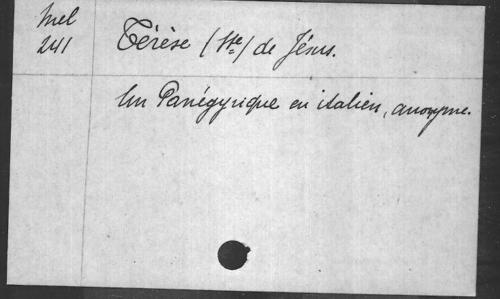 Mel
241
Térèse (Ste) de Jésus.
Un Panégyrique en italien, anonyme.